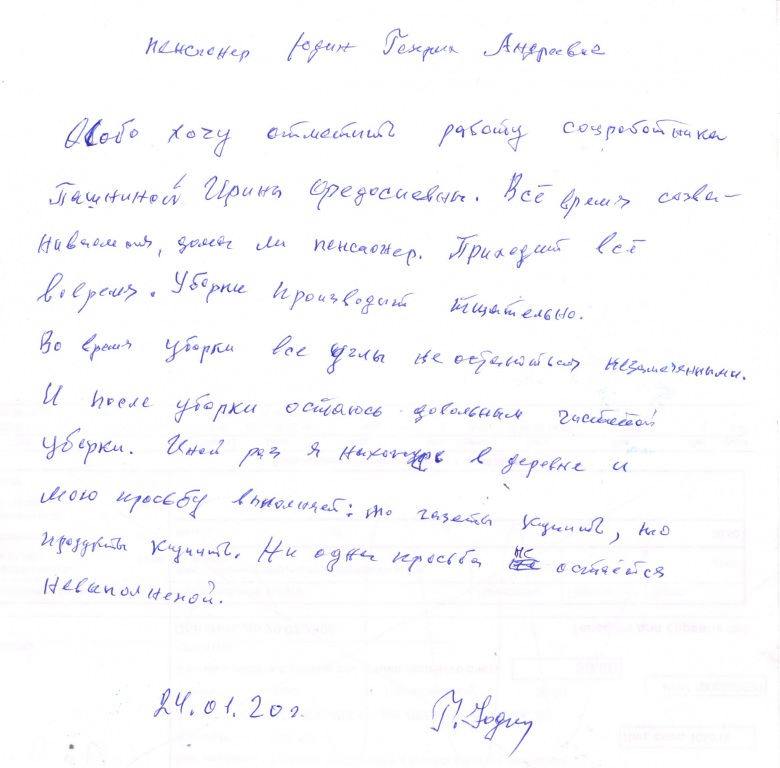 пенсионер Юдин Генрих Андреевич
Особо хочу отметить работу соцработника
Пашниной Ирины Федосиевны. Всё время созва-
нивается, дома ли пенсионер. Приходит всё
вовремя. Уборки производит тщательно.
Во время уборки все углы не остаються незамеченными.
И после уборки остаюсь довольным чистотой
уборки. Иной раз я нахожусь в деревне и
мою просьбу выполняет: то газеты купить, то
продукты купить. Ни одна просьба не остаётся
невыполненой.
24.01.20 г.
Г. Юдин